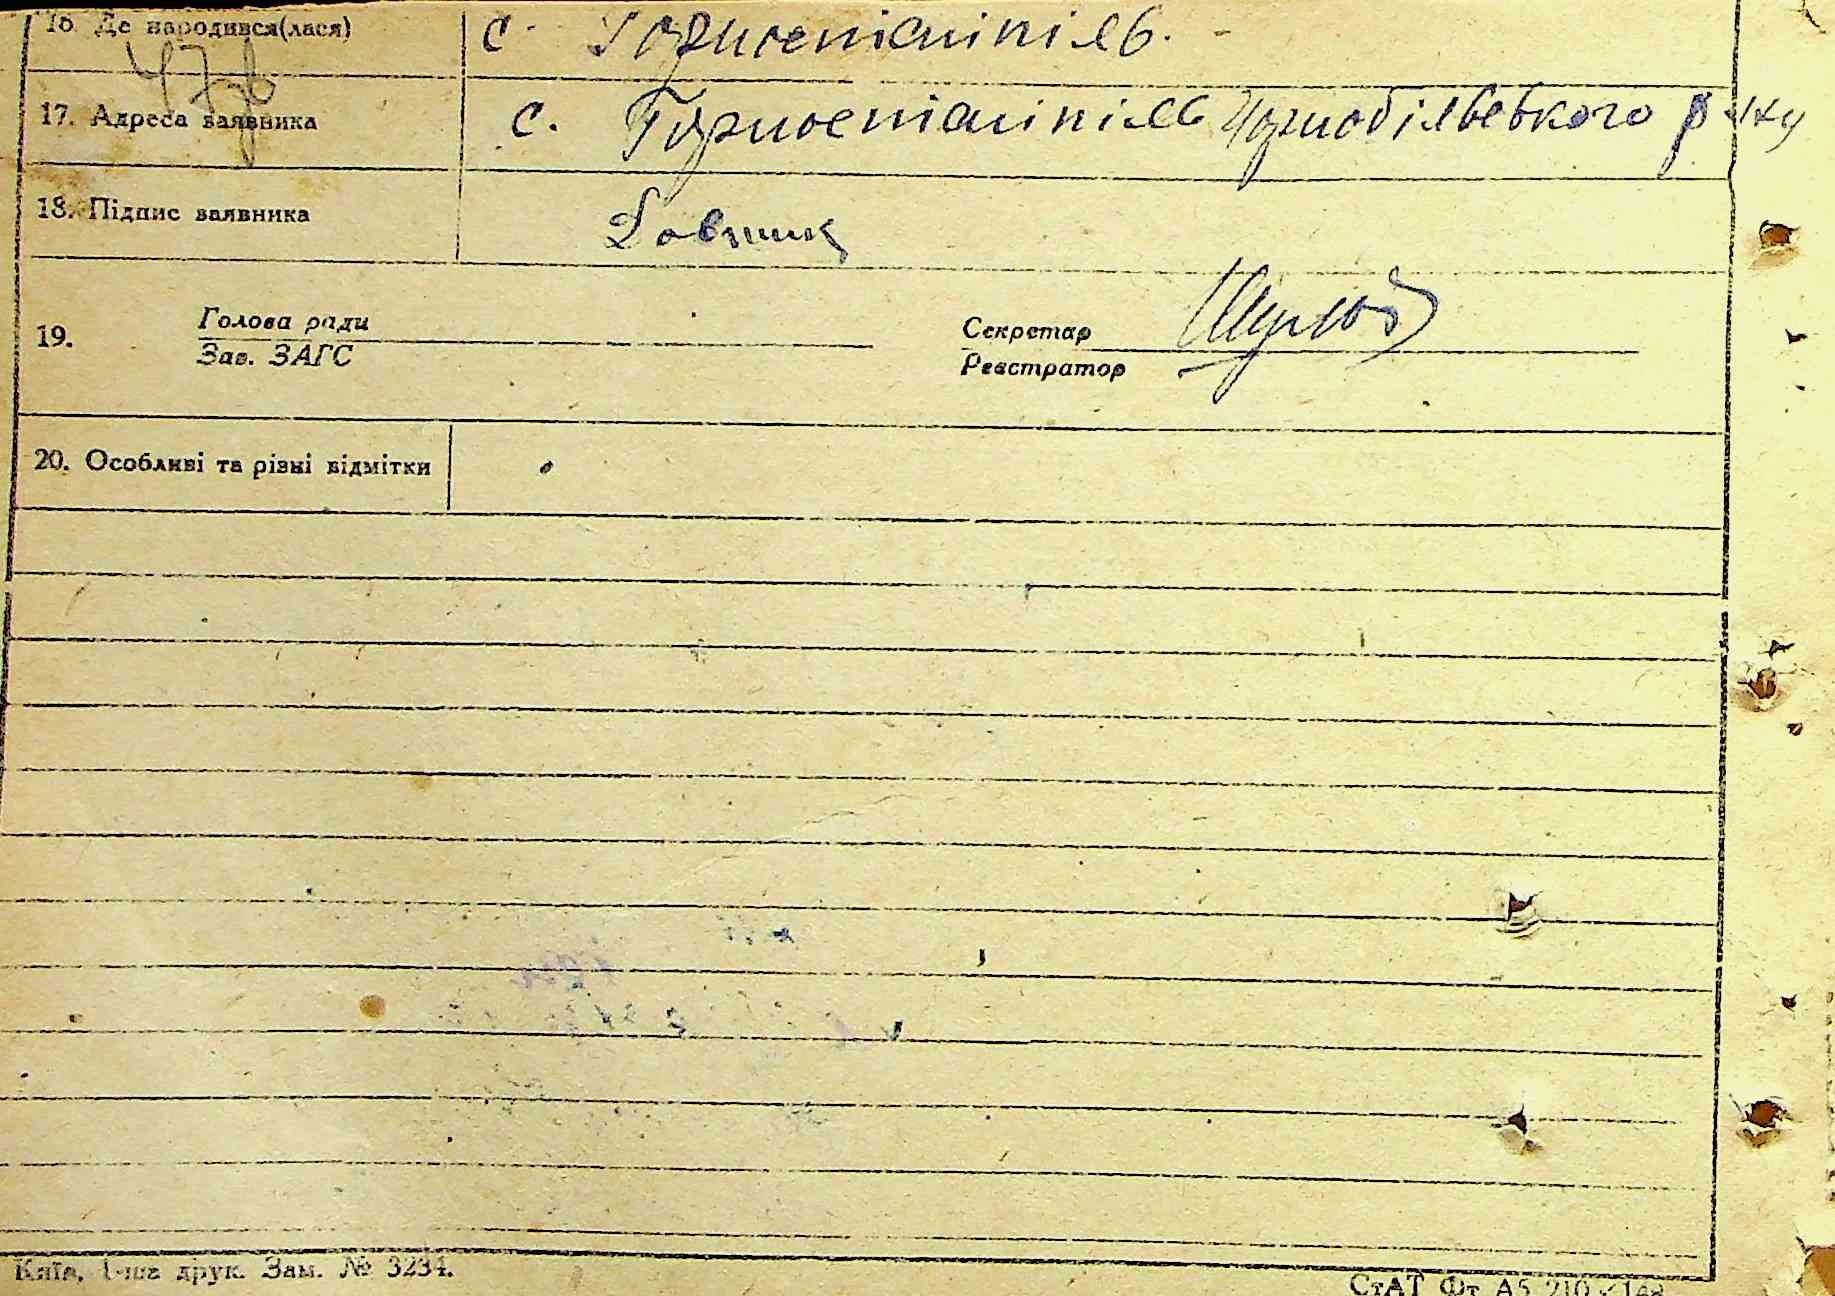 16. Де народився(лася) с. Горностайпіль.
47
17. Адреса заявника с. Горностайпіль Чорнобільського р-ну
18. Підпис заявника Довгик
19. Голова ради
Зав. ЗАГС
Секретар
Реєстратор
20. Особливі та різні відмітки
Київ, 1-ша друк. Зам. № 3234.
СтАТ Фт А5 210 148